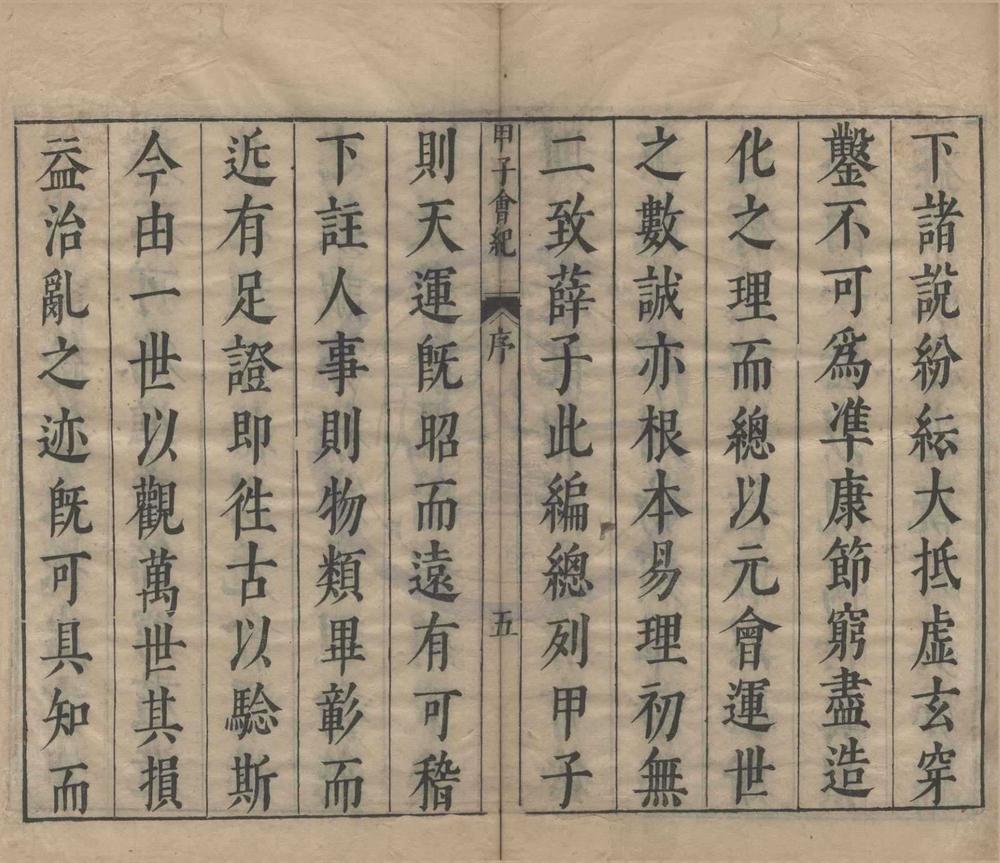 下諸說紛紜大抵虚玄穿
鑿不可爲凖康節窮盡造
化之理而總以元會運世
之數誠亦根本易理初無
二致薛子此編總列甲子
甲子會紀
序
五
則天運旣昭而遠有可稽
下註人事則物類畢彰而
近有足證即徃古以驗斯
今由一世以觀萬世其損
益治亂之迹旣可具知而